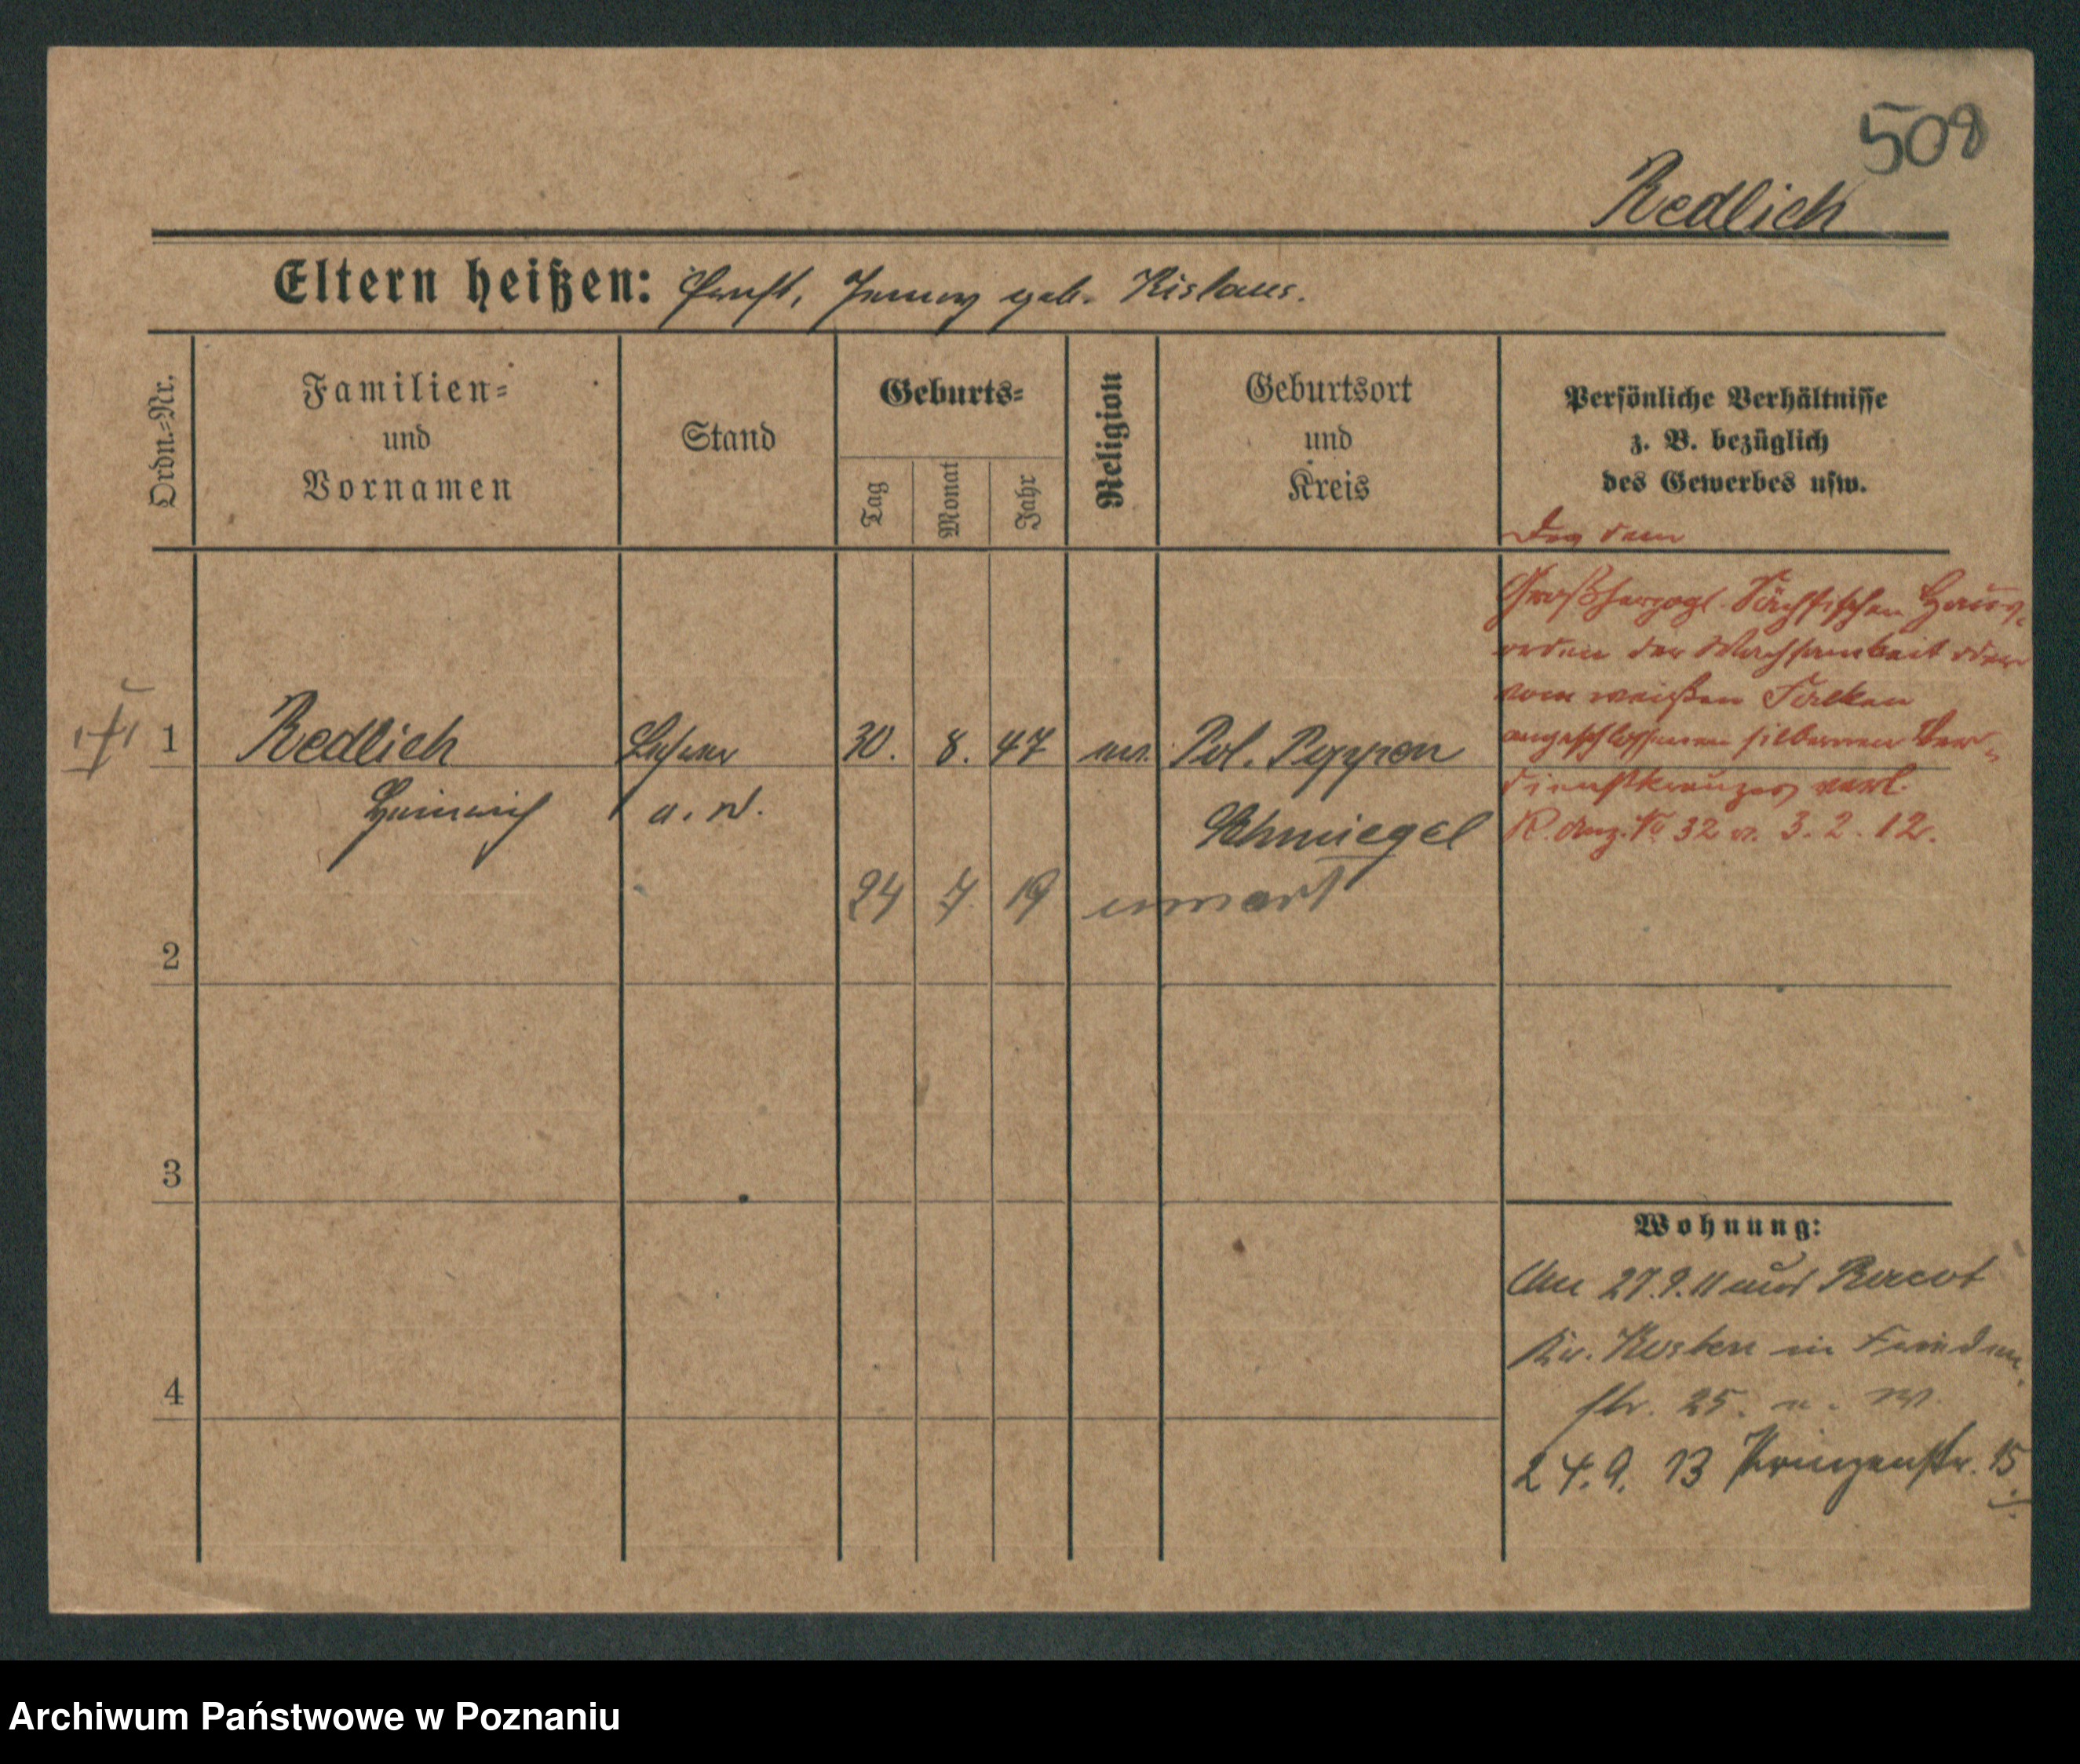 508
Redlich
Eltern heißen: Ernst, Jenny geb. Kislaus.
Ordn.-Nr.
Familien-
und
Vornamen
Stand
Geburts-
Tag
Monat
Jahr
Religion
Geburtsort
und
Kreis
Persönliche Verhältnisse
z. B. bezüglich
des Gewerbes usw.
dem
Großherzogl. Sächsischen Haus-
orden der Wachsamkeit oder
vom weißen Falken
angeschlossenen silbernen Ver-
dienstkreuzes verl.
R. Anz. No 32 v. 3. 2. 12.
1 Redlich Lehrer 30. 8. 47 ev. Pol. Poppen
Heinrich a. D. Schmiegel
24 7 19
2
3
4
Wohnung:
Am 27.9.11 aus Racot
Kr. Kosten in Frieden
str. 25.
24.9.13 Prinzenstr. 15
Archiwum Państwowe w Poznaniu